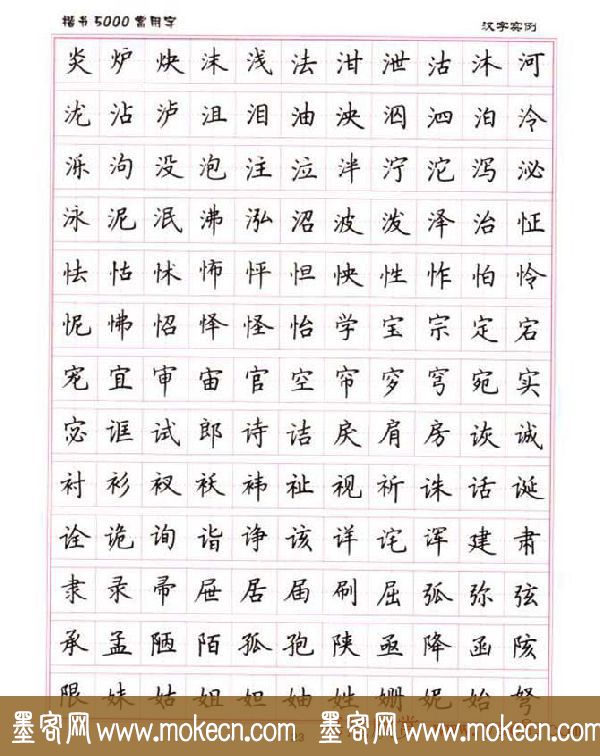 楷书5000常用字 汉字实例
炎炉炔沫浅法泔泄沽沐河
泷沾泸沮泪油泱泅泗泊泠
泺沟没泡注泣泮泞沱泻泌
泳泥泯沸泓沼波泼泽治怔
怯怙怵怖怦怛怏性怍怕怜
怩怫怊怿怪怡学宝宗定宕
宠宜审宙官空帘穸穹宛实
宓诓试郎诗诘戾肩房诙诚
衬衫衩袄袆祉视祈诛话诞
诠诡询诣诤该详诧诨建肃
隶录帚屉居届刷屈弧弥弦
承孟陋陌孤孢陕亟降函陔
限妹姑姐妲妯姓姗妮始弩
墨客网 www.mokecn.com 墨客网 www.mokecn.com